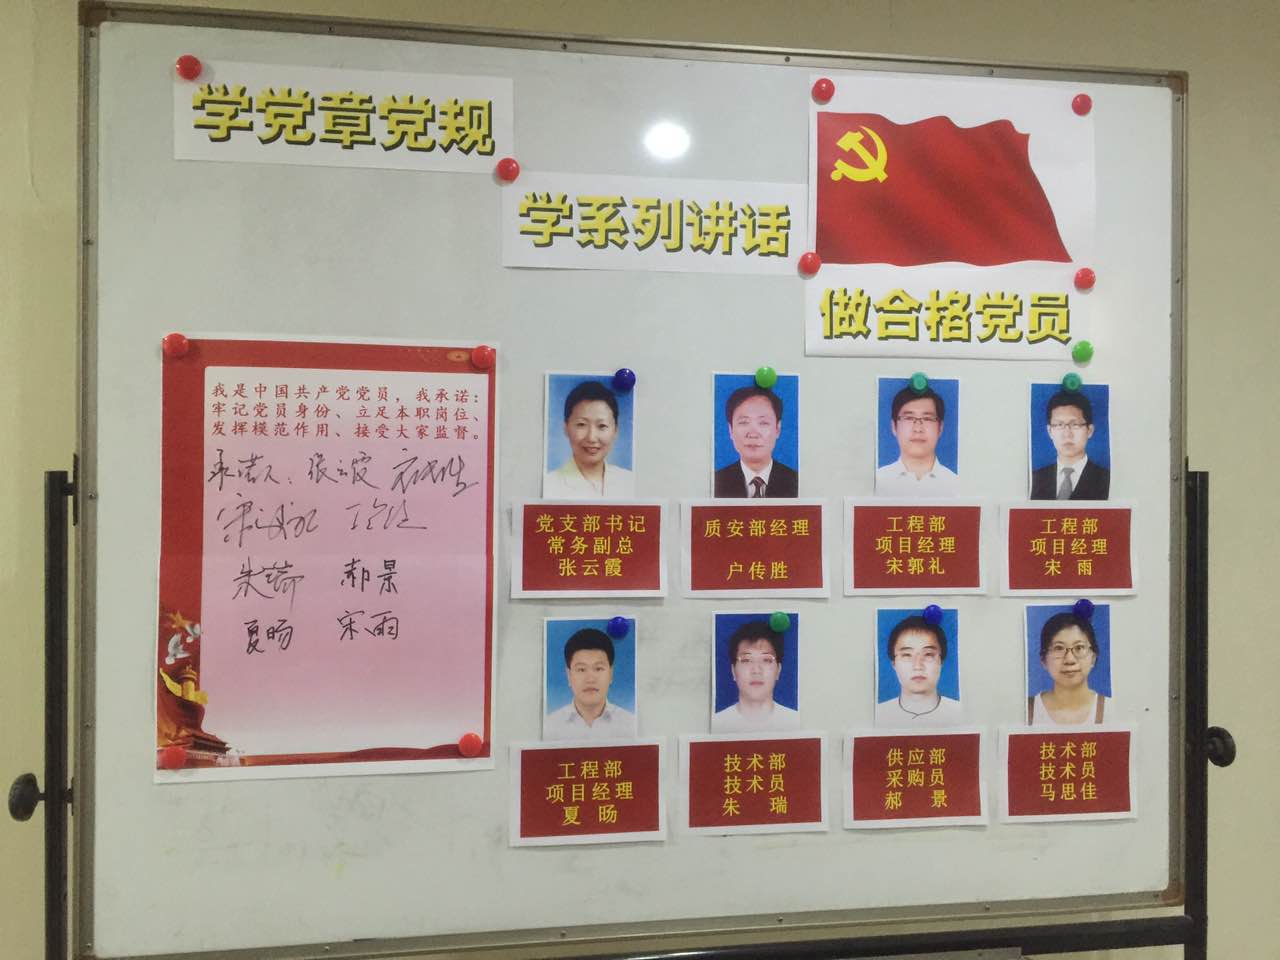 学党章党规
学系列讲话
做合格党员
我是中国共产党党员，我承诺：
牢记党员身份、立足本职岗位、
发挥模范作用、接受大家监督。
承诺人：张云霞
朱瑞 郝景
夏旸 宋雨
党支部书记
常务副总
张云霞
质安部经理
户传胜
工程部
项目经理
宋郭礼
工程部
项目经理
宋 雨
工程部
项目经理
夏 旸
技术部
技术员
朱 瑞
供应部
采购员
郝 景
技术部
技术员
马思佳